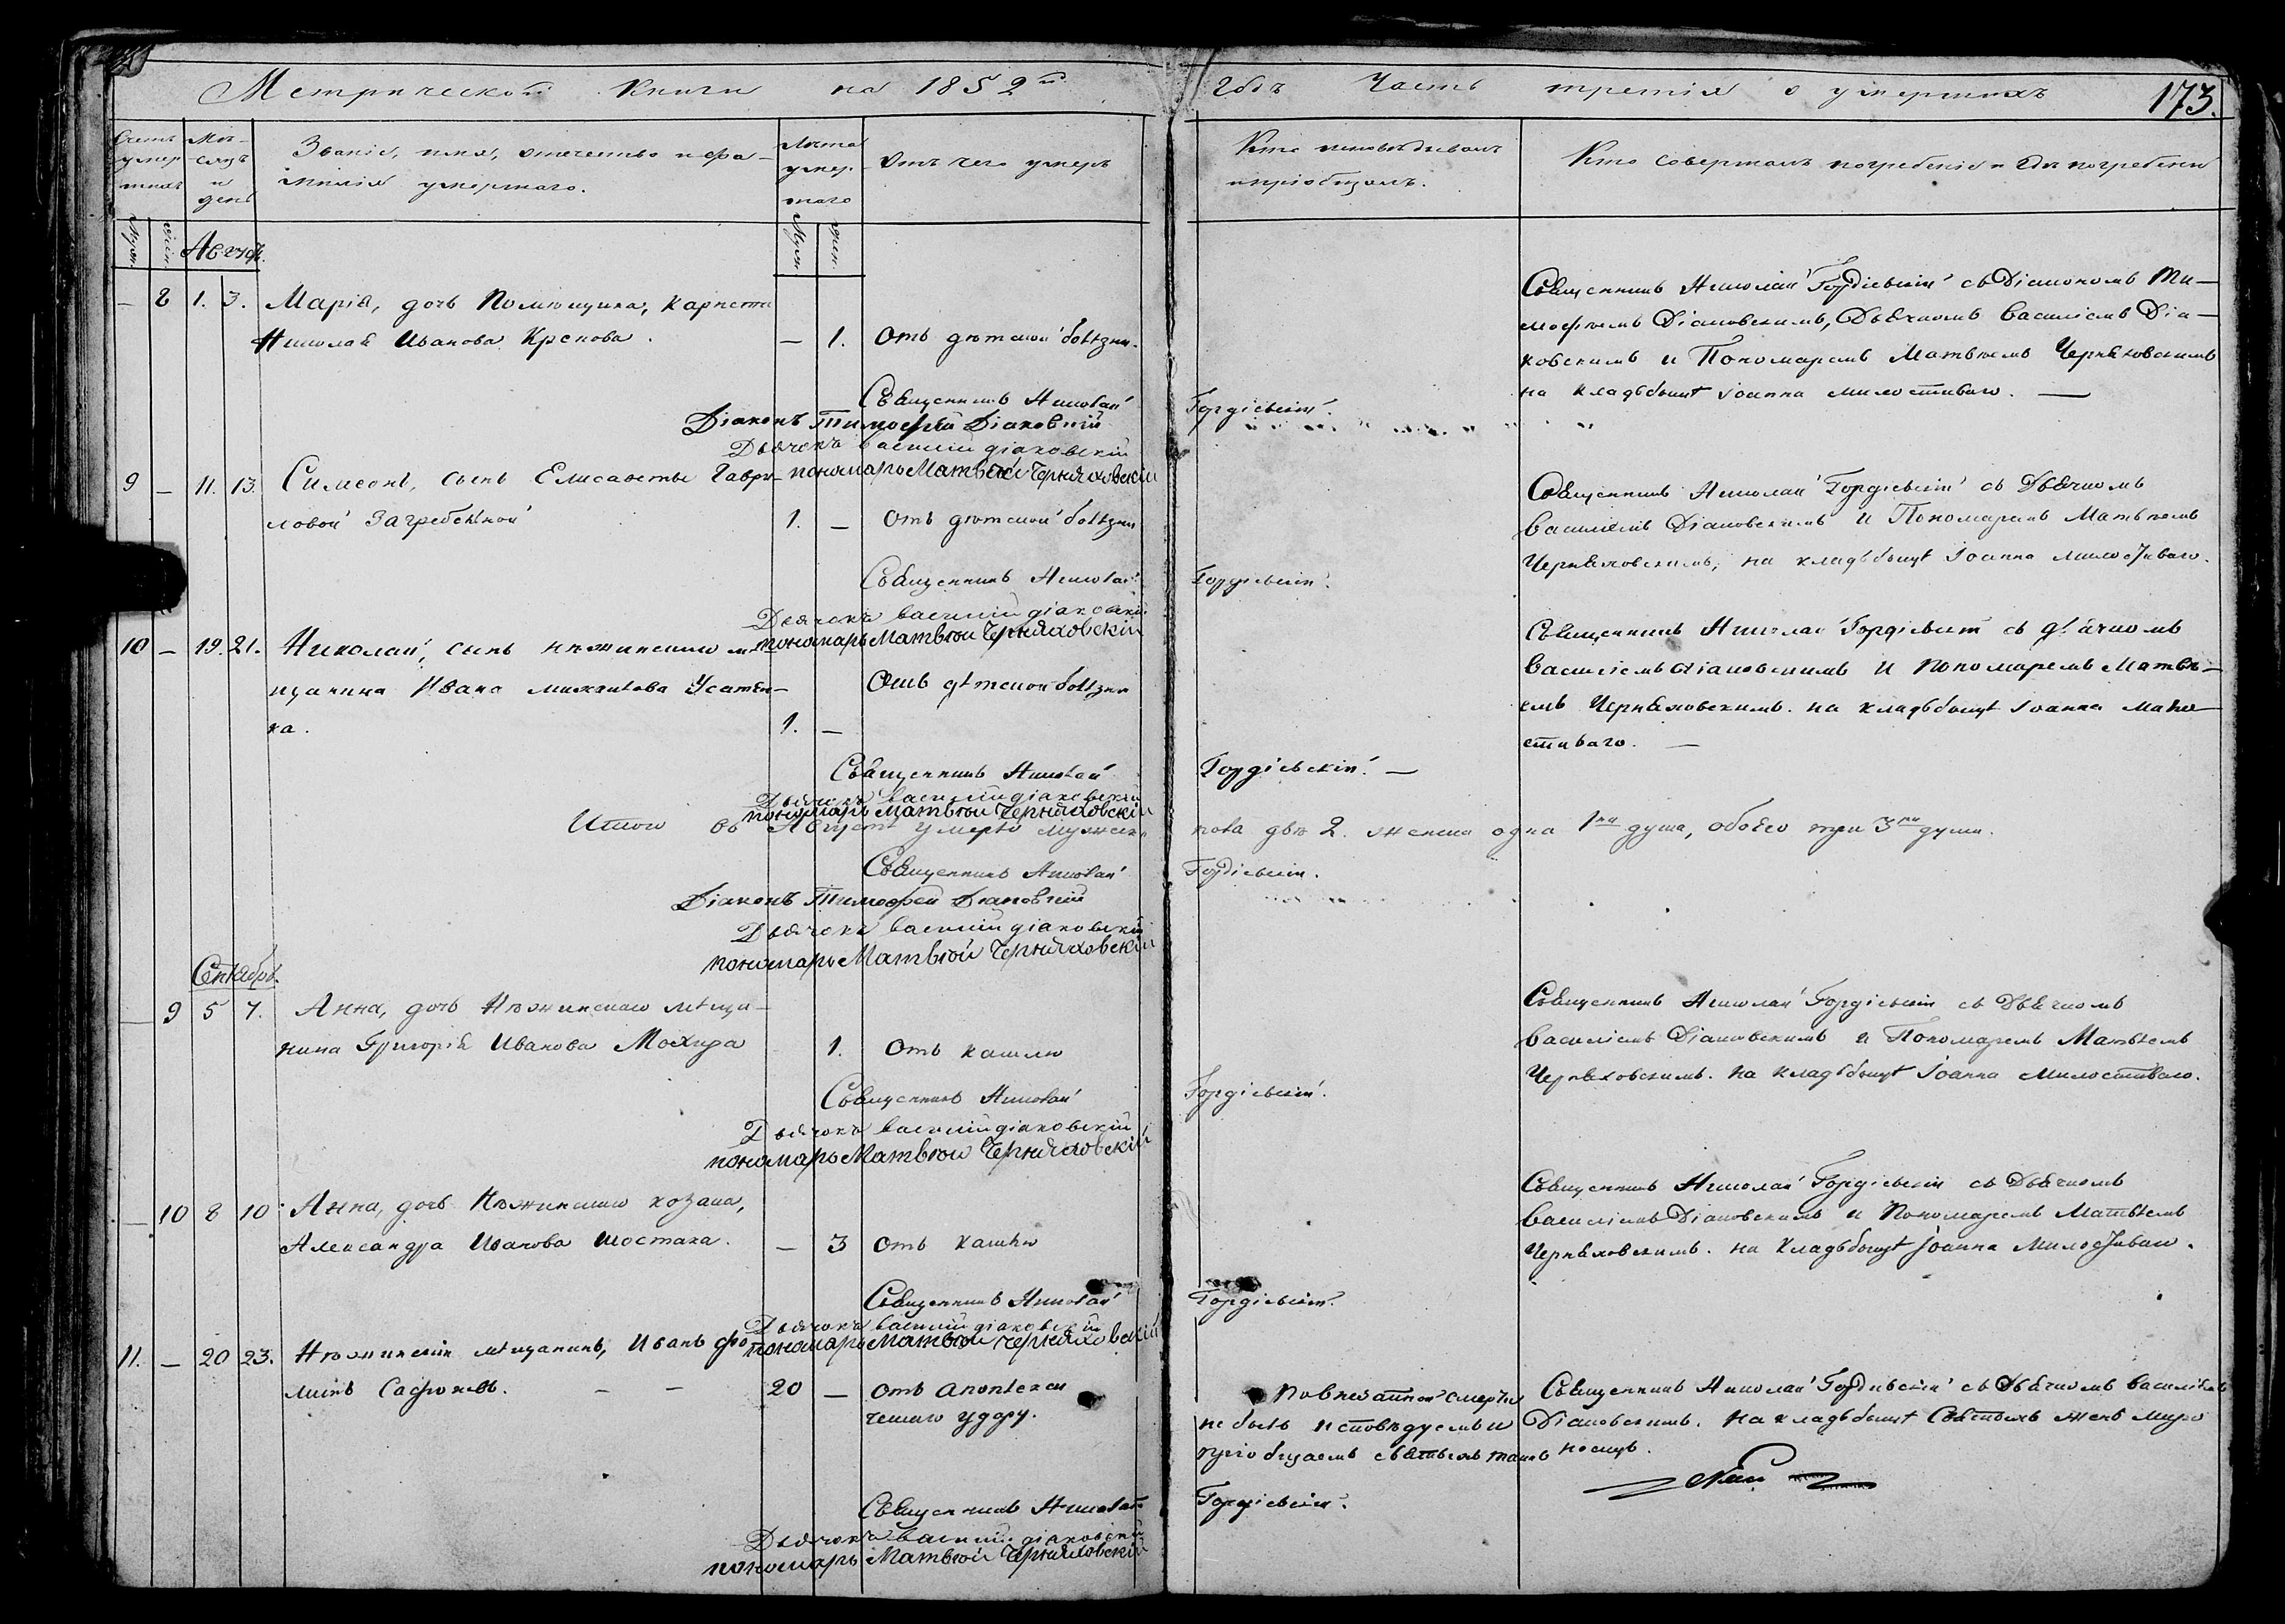 Метрической Книги на 1852й
годъ Часть третія о умершихъ 173.
Счетъ умер шихъ
Мѣ- сяцъ и день
Званіе, имя, отчество и фа-
милія умершаго.
Лѣта умер- шаго
Отъ чего умеръ
Кто исповѣдывалъ
и пріобщалъ.
Кто совершалъ погребеніе и гдѣ погребены
Муж. Жен. Авгус. Муж. Жен.
— 8 1. 3. Марія, дочь Помѣщика,
Николая Иванова — 1. Отъ дѣтской болѣзни.
Священникъ Николай Гордіевскій съ Діакономъ Ти-
мофеемъ Діаковскимъ, Дьячкомъ Василіемъ Діа-
ковскимъ и Пономаремъ Матвѣемъ Черняховскимъ
на кладбыщѣ Іоанна милостиваго. —
Священникъ Николай Гордіевскій.
Діаконъ Тимофей Діаковскій
Дьячокъ Василий діаковскій
пономарь Матвѣй Черняховскій
9 — 11. 13. Симеонъ, сынъ Елисаветы Гаври-
ловой Загребельной 1. — Отъ дѣтской болѣзни
Священникъ Николай Гордіевскій съ Дьячкомъ
Василіемъ Діаковскимъ и Пономаремъ Матвѣемъ
Черняховскимъ, на кладбыщѣ Іоанна милостиваго.
Священникъ Николай Гордіевскій.
Дьячокъ Василий діаковскій
пономарь Матвѣй Черняховскій
10 — 19. 21. Николай, сынъ нѣжинскаго мѣ-
щанина Ивана Михайлова Усатен-
ка. 1. — Отъ дѣтской болѣзни
Священникъ Николай Гордіевскій съ дьячкомъ
Василіемъ Діаковскимъ и Пономаремъ Матвѣ-
емъ Черняховскимъ. на кладбыщѣ Іоанна мило-
стиваго. —
Священникъ Николай Гордіевскій. —
Дьячокъ Василий діаковскій
пономарь Матвѣй Черняховскій
Итого въ Августѣ умерло мужеска пола двѣ 2. женска одна 1на душа, обоего три 3ри души.
Священникъ Николай Гордіевскій.
Діаконъ Тимофей Діаковскій
Дьячокъ Василий діаковскій
пономарь Матвѣй Черняховскій
Сентябрь.
— 9 5 7. Анна, дочь Нѣжинскаго мѣща-
нина Григорія Иванова 1. Отъ кашлю
Священникъ Николай Гордіевскій съ Дьячкомъ
Василіемъ Діаковскимъ и Пономаремъ Матвѣемъ
Черняховскимъ. на кладбыщѣ Іоанна Милостиваго.
Священникъ Николай Гордіевскій.
Дьячокъ Василий діаковскій
пономарь Матвѣй Черняховскій
— 10 8 10 Анна, дочь Нѣжинскаго козака,
Александра Иванова Шостака. — 3 Отъ кашлю
Священникъ Николай Гордіевскій съ Дьячкомъ
Василіемъ Діаковскимъ и Пономаремъ Матвѣемъ
Черняховскимъ. на кладбыщѣ Іоанна Милостиваго.
Священникъ Николай Гордіевскій.
Дьячокъ Василий діаковскій
пономарь Матвѣй Черняховскій
11. — 20 23. Нѣжинскій мѣщанинъ, Иванъ Фо-
минъ 20 — Отъ апоплекси-
ческаго удару.
По внезапной смерти
не былъ исповѣдуемъ и
пріобщаемъ святыхъ таинъ
Священникъ Николай Гордіевскій съ Дьячкомъ Василіемъ
Діаковскимъ. на кладбыщѣ Святыхъ женъ миро
носицъ.
Священникъ Николай Гордіевскій.
Дьячокъ Василий діаковскій
пономарь Матвѣй Черняховскій